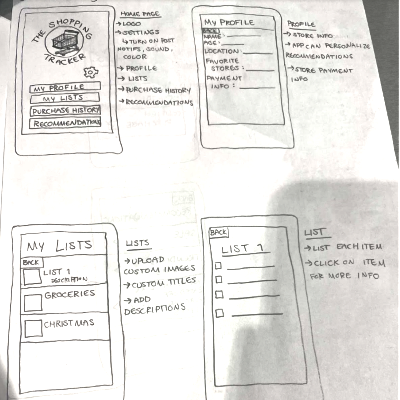 THE SHOPPING
TRACKER
MY PROFILE
MY LISTS
PURCHASE HISTORY
RECOMMENDATIONS
HOME PAGE
→ LOGO
→ SETTINGS
↳ TURN ON POST
NOTIFS, SOUND,
COLOR
→ PROFILE
→ LISTS
→ PURCHASE HISTORY
→ RECOMMENDATIONS
MY PROFILE
BACK
NAME:
AGE:
LOCATION:
FAVORITE
STORES:
PAYMENT
INFO:
PROFILE
→ STORE INFO
→ APP CAN PERSONALIZE
RECOMMENDATIONS
→ STORE PAYMENT
INFO
MY LISTS
BACK
LIST 1
DESCRIPTION
GROCERIES
CHRISTMAS
LISTS
→ UPLOAD
CUSTOM IMAGES
→ CUSTOM TITLES
→ ADD
DESCRIPTIONS
BACK
LIST 1
LIST
→ LIST EACH ITEM
→ CLICK ON ITEM
FOR MORE INFO